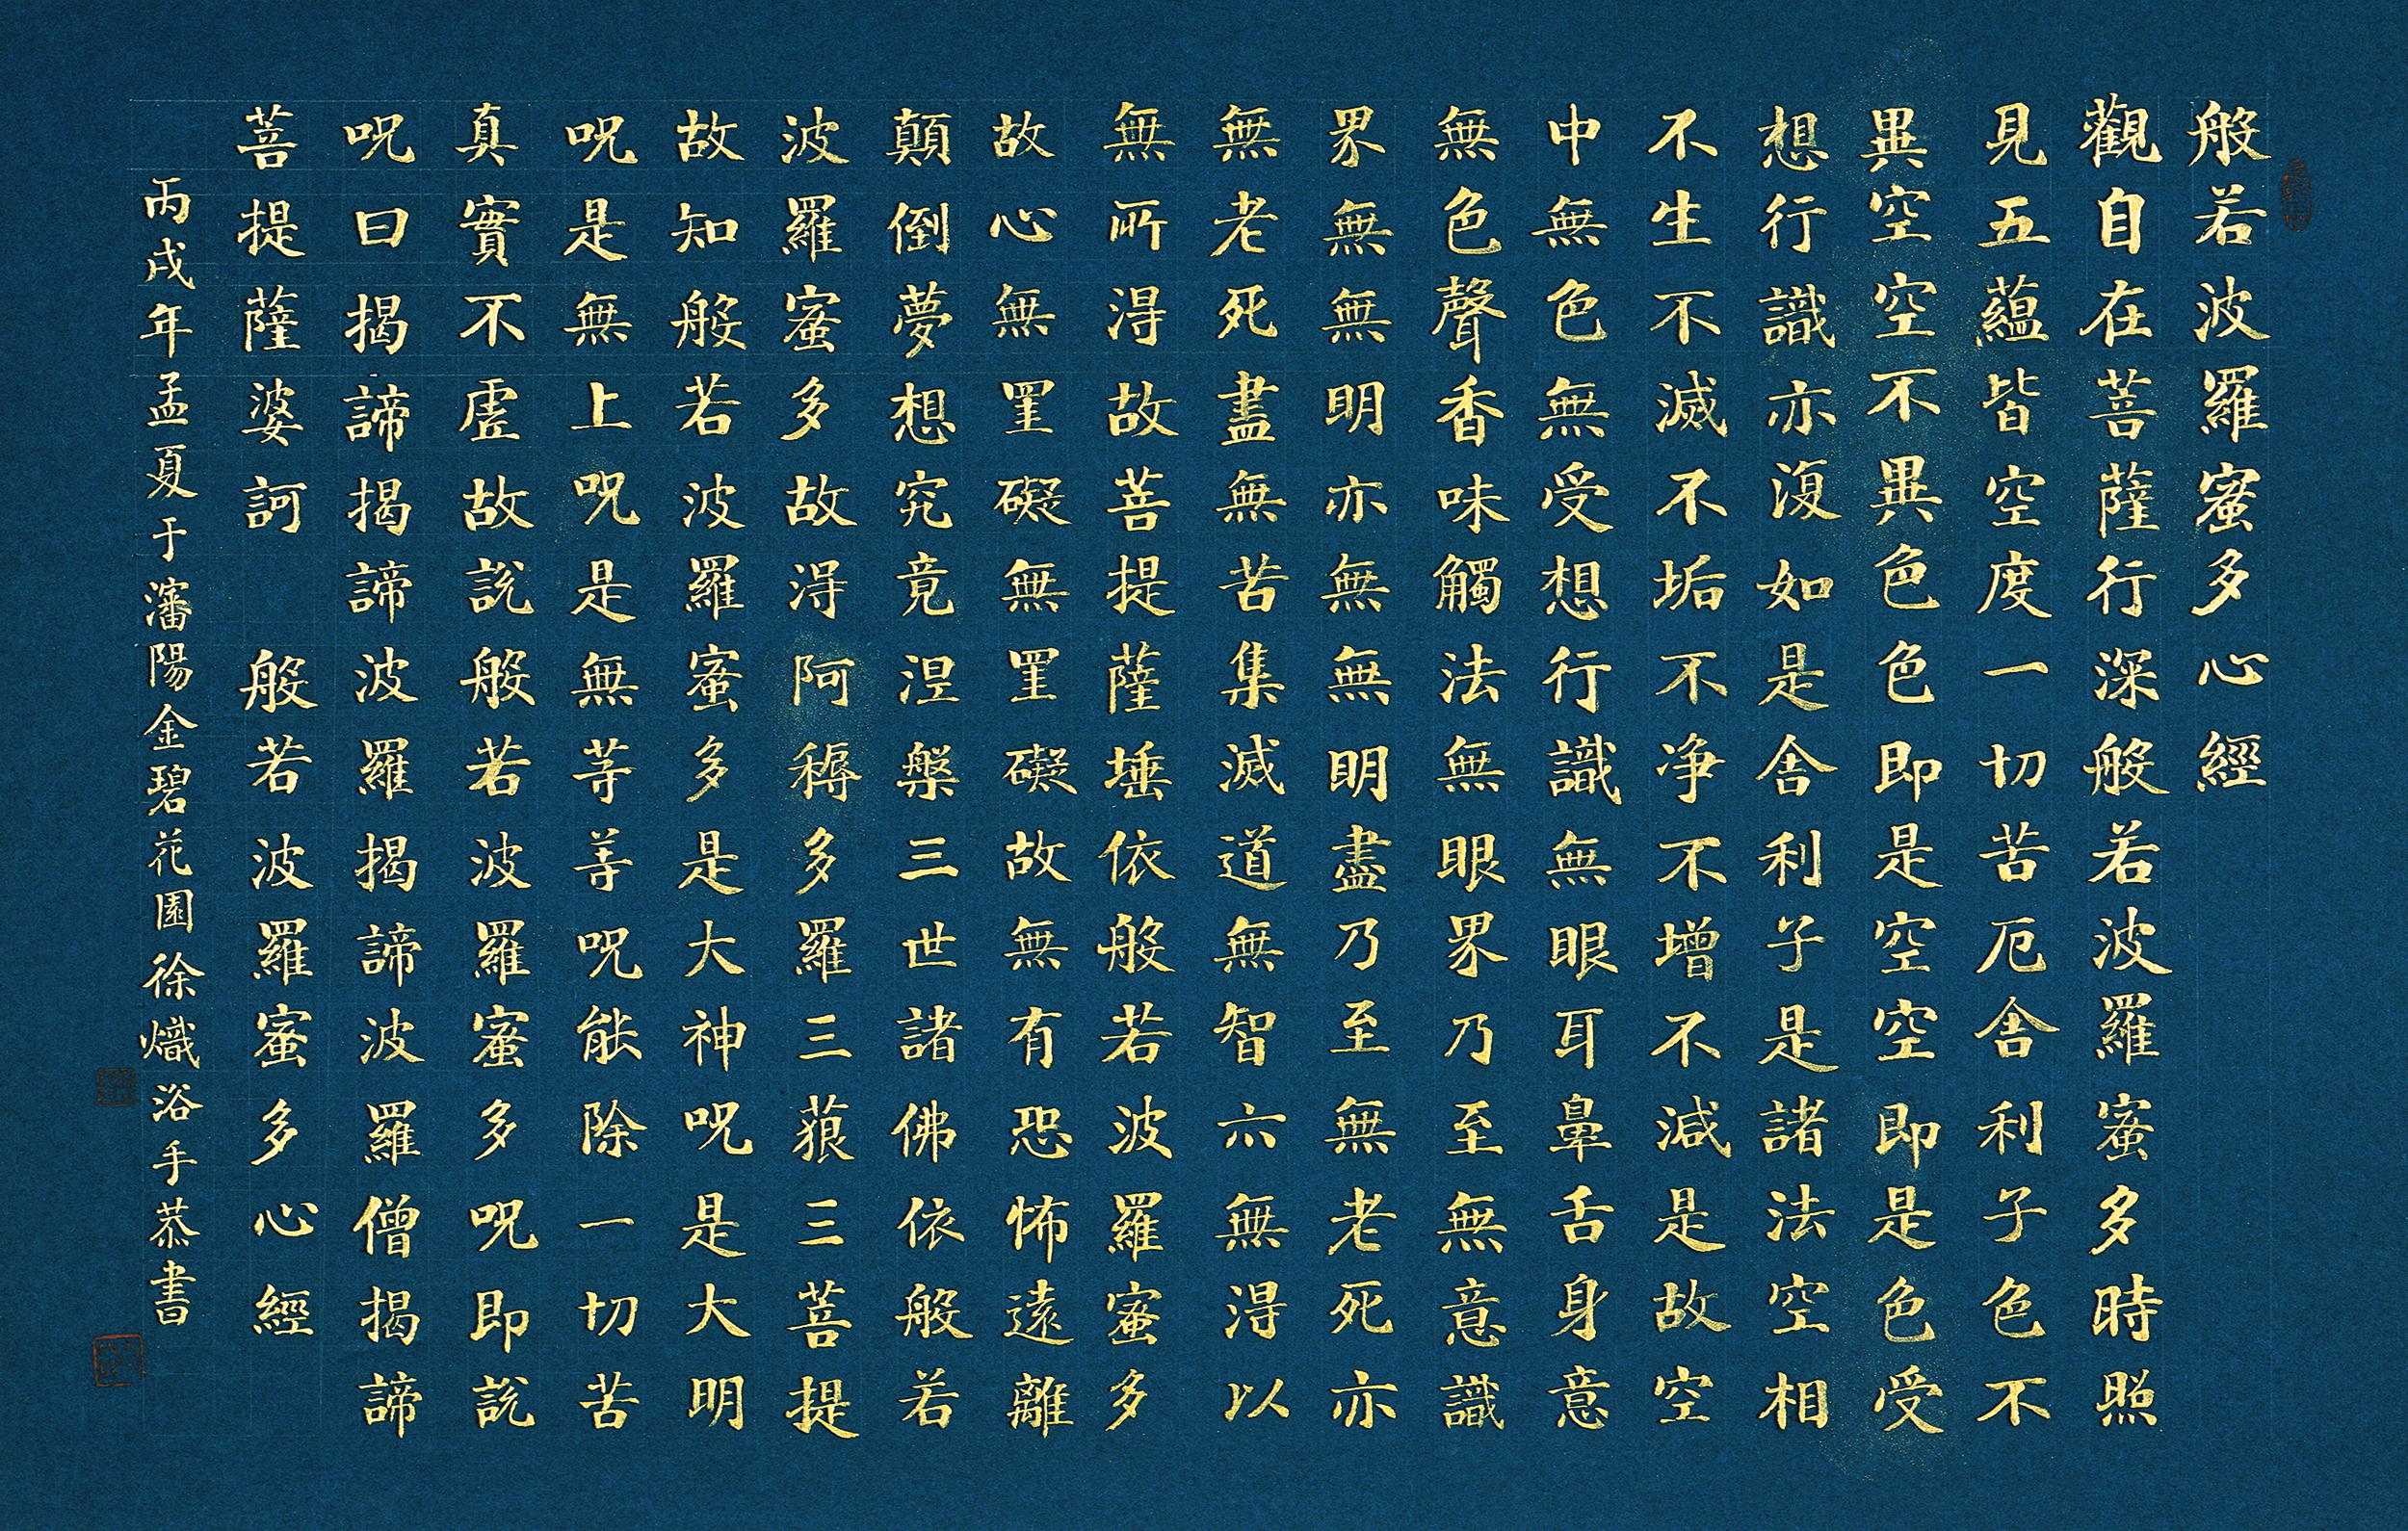 般若波羅蜜多心經
觀自在菩薩行深般若波羅蜜多時照
見五蘊皆空度一切苦厄舍利子色不
異空空不異色色即是空空即是色受
想行識亦復如是舍利子是諸法空相
不生不滅不垢不净不增不減是故空
中無色無受想行識無眼耳鼻舌身意
無色聲香味觸法無眼界乃至無意識
界無無明亦無無明盡乃至無老死亦
無老死盡無苦集滅道無智六無得以
無所得故菩提薩埵依般若波羅蜜多
故心無罣礙無罣礙故無有恐怖遠離
顛倒夢想究竟涅槃三世諸佛依般若
波羅蜜多故得阿耨多羅三藐三菩提
故知般若波羅蜜多是大神呪是大明
呪是無上呪是無等等呪能除一切苦
真實不虛故說般若波羅蜜多呪即說
呪曰揭諦揭諦波羅揭諦波羅僧揭諦
菩提薩婆訶 般若波羅蜜多心經
丙戌年孟夏于瀋陽金碧花園徐熾浴手恭書